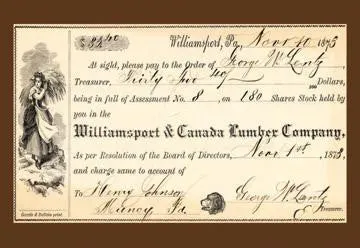 $32.40 Williamsport, Pa, Novr 10 1873
At sight, please pay to the Order of George W. Lentz
Treasurer, Thirty Two 40/100 Dollars,
being in full of Assessment No. 8, on 180 Shares Stock held by
you in the
Williamsport & Canada Lumber Company,
As per Resolution of the Board of Directors, Novr 1st, 1873,
and charge same to account of
To Henry Johnson George W. Lentz
Muncy, Pa Treasurer.
Gazette & Bulletin print.